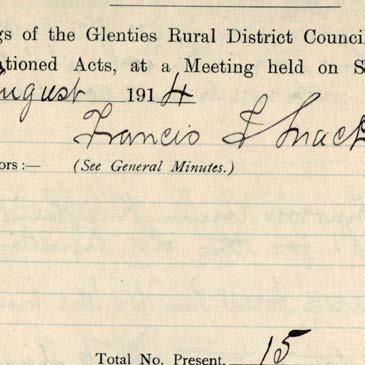 gs of the Glenties Rural District Counci
tioned Acts, at a Meeting held on S
August 1914
Francis
ors:— (See General Minutes.)
Total No. Present, 15